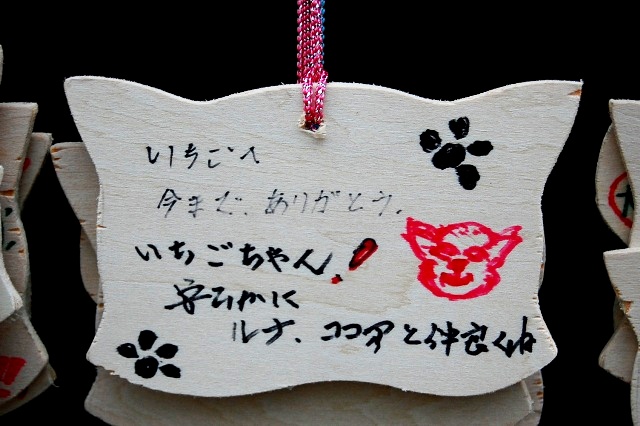 いちごへ
今まで、ありがとう。
いちごちゃん!
安らかに
ルナ、ココアと仲良くね